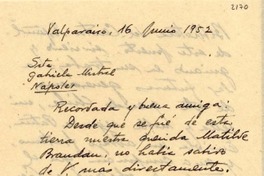 2170
Valparaíso, 16 Junio 1952
Srta
Gabriela Mistral
Nápoles
Recordada y buena amiga:
Desde que se fué de esta
tierra nuestra querida Matilde
Brandau, no había sabido
de V. mas directamente.